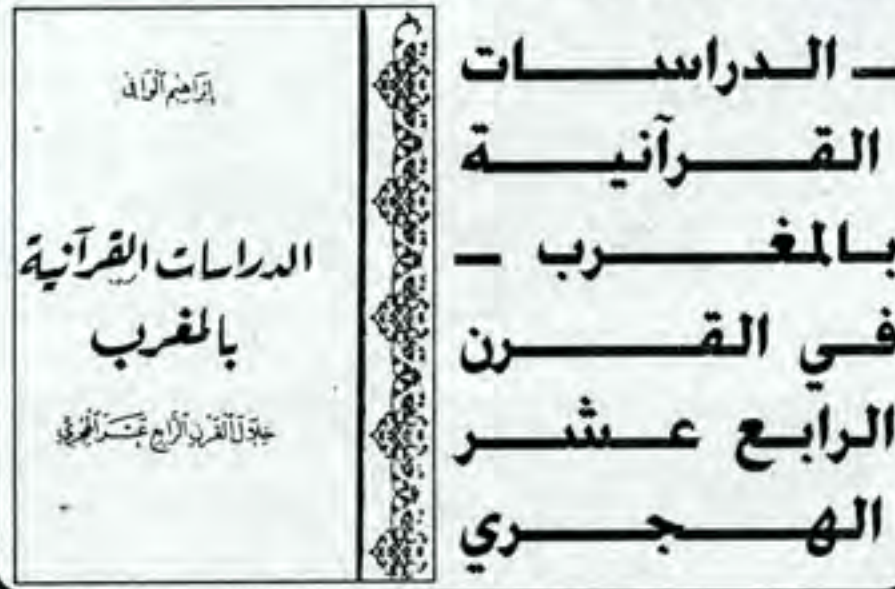 ـ الدراسات
القرآنية
بالمغرب ـ
في القرن
الرابع عشر
الهجري
إبراهيم الوافي
الدراسات القرآنية
بالمغرب
خلال القرن الرابع عشر الهجري